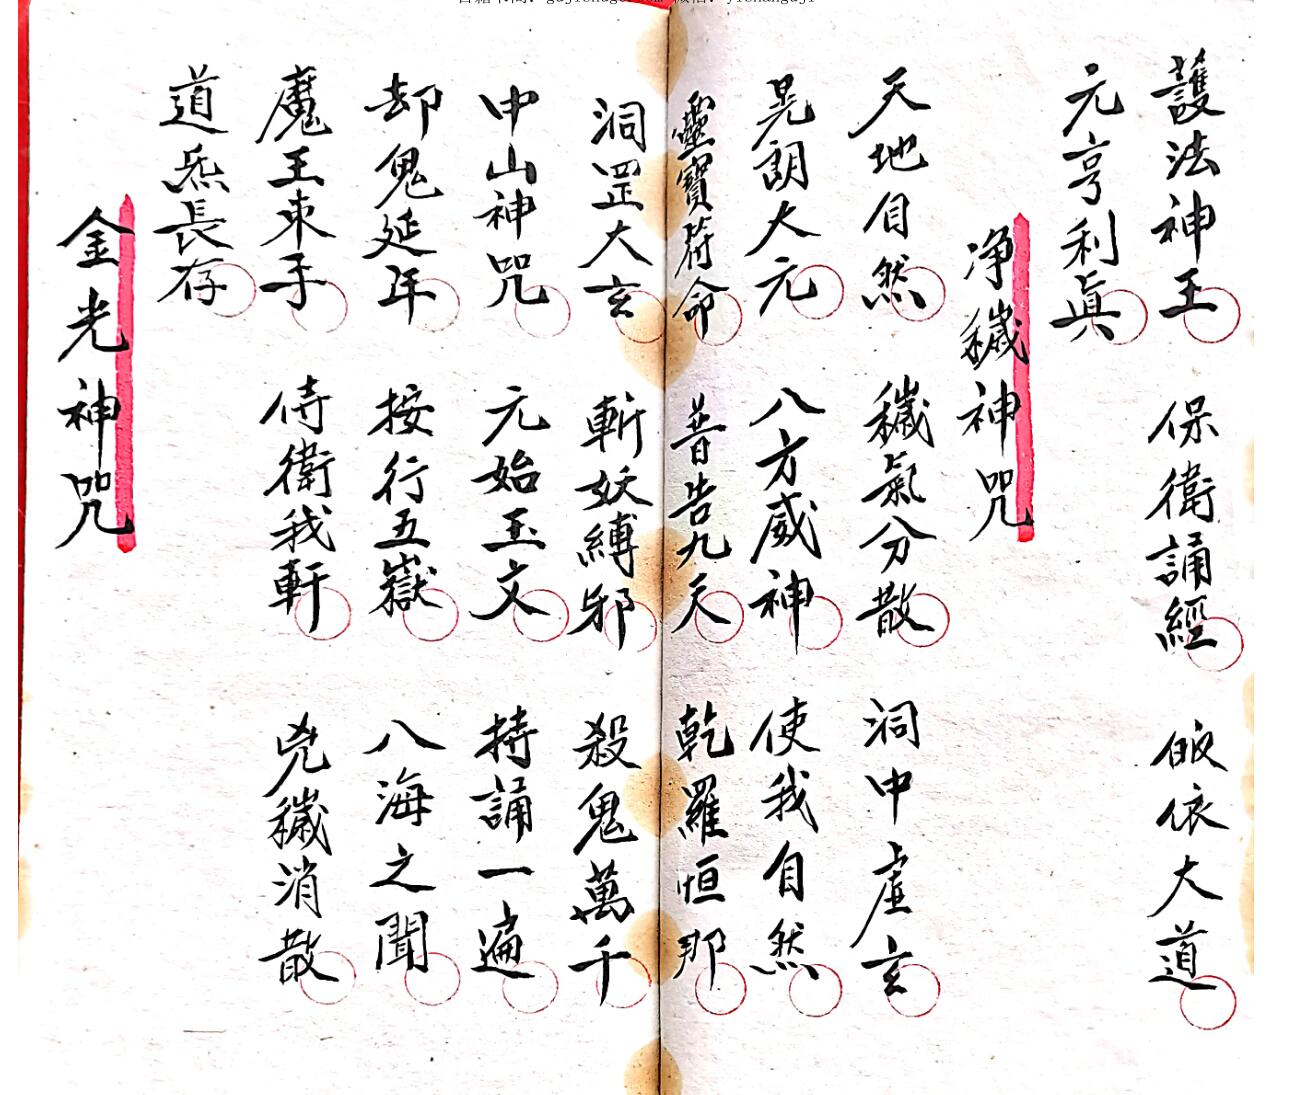 護法神王 保衛誦經 皈依大道
元亨利眞
净穢神咒
天地自然 穢氣分散 洞中虛玄
晃朗大元 八方威神 使我自然
靈寶符命 普告九天 乾羅恒那
洞罡大玄 斬妖縛邪 殺鬼萬千
中山神咒 元始玉文 持誦一遍
却鬼延年 按行五嶽 八海之聞
魔王束手 侍衛我軒 兇穢消散
道炁長存
金光神咒